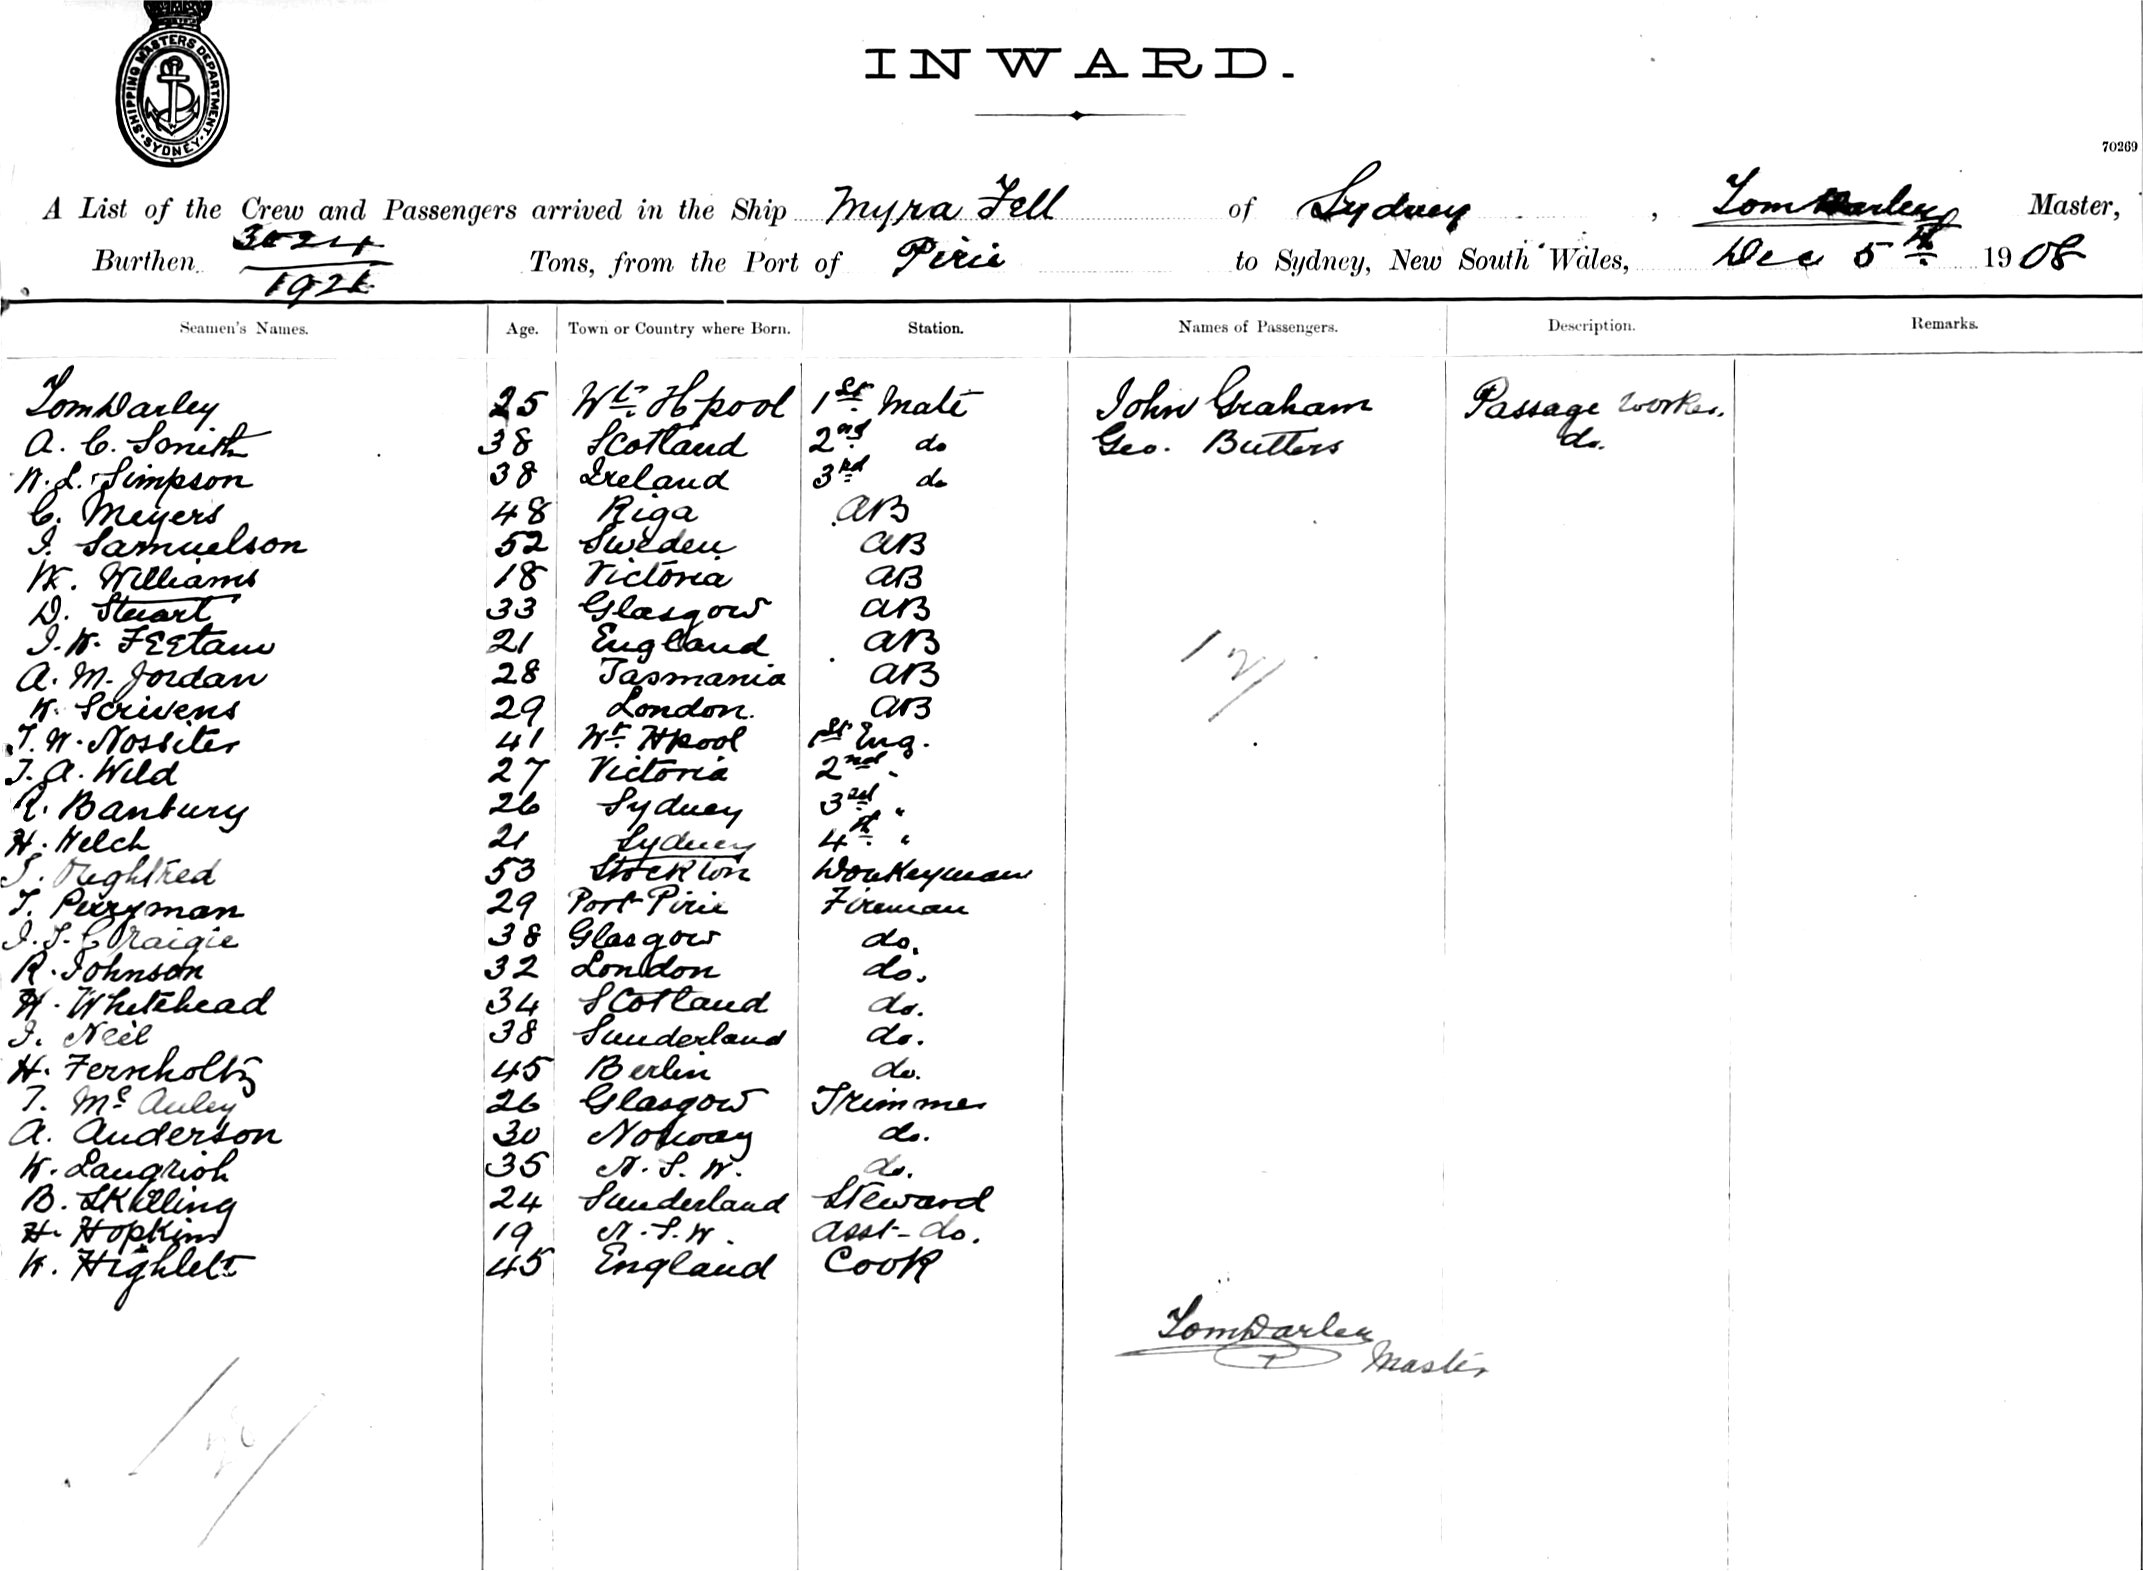 SHIPPING MASTERS DEPARTMENT
SYDNEY
INWARD.
70269
A List of the Crew and Passengers arrived in the Ship Myra Fell of Sydney, Tom Darley Master,
Burthen 3024 Tons, from the Port of Pirie to Sydney, New South Wales, Dec 5th 1908
Seamen's Names. Age. Town or Country where Born. Station. Names of Passengers. Description. Remarks.
Tom Darley 25 Wt. Hpool 1st Mate John Graham Passage worker.
A. C. Smith 38 Scotland 2nd do Geo. Butters do.
W. L. Simpson 38 Ireland 3rd do
C. Meyers 48 Riga AB
I. Samuelson 52 Sweden AB
W. Williams 18 Victoria AB
D. Stuart 33 Glasgow AB
J. W. FEEtam 21 England AB
A. M. Jordan 28 Tasmania AB
W. Scrivens 29 London. AB
T. W. Nossiter 41 Wt. Hpool 1st Eng.
J. A. Wild 27 Victoria 2nd "
R. Banbury 26 Sydney 3rd "
H. Welch 21 Sydney 4th "
T. Oughtred 53 Stockton Donkeyman
T. Perryman 29 Port Pirie Fireman
J. S. Craigie 38 Glasgow do.
R. Johnson 32 London do.
H. Whitehead 34 Scotland do.
J. Neil 38 Sunderland do.
H. Fernholtz 45 Berlin do.
T. McAuley 26 Glasgow Trimmer
A. Anderson 30 Norway do.
W. Langrish 35 N. S. W. do.
B. Skilling 24 Sunderland Steward
H. Hopkins 19 N. S. W. Asst- do.
W. Highlett 45 England Cook
Tom Darley
Master